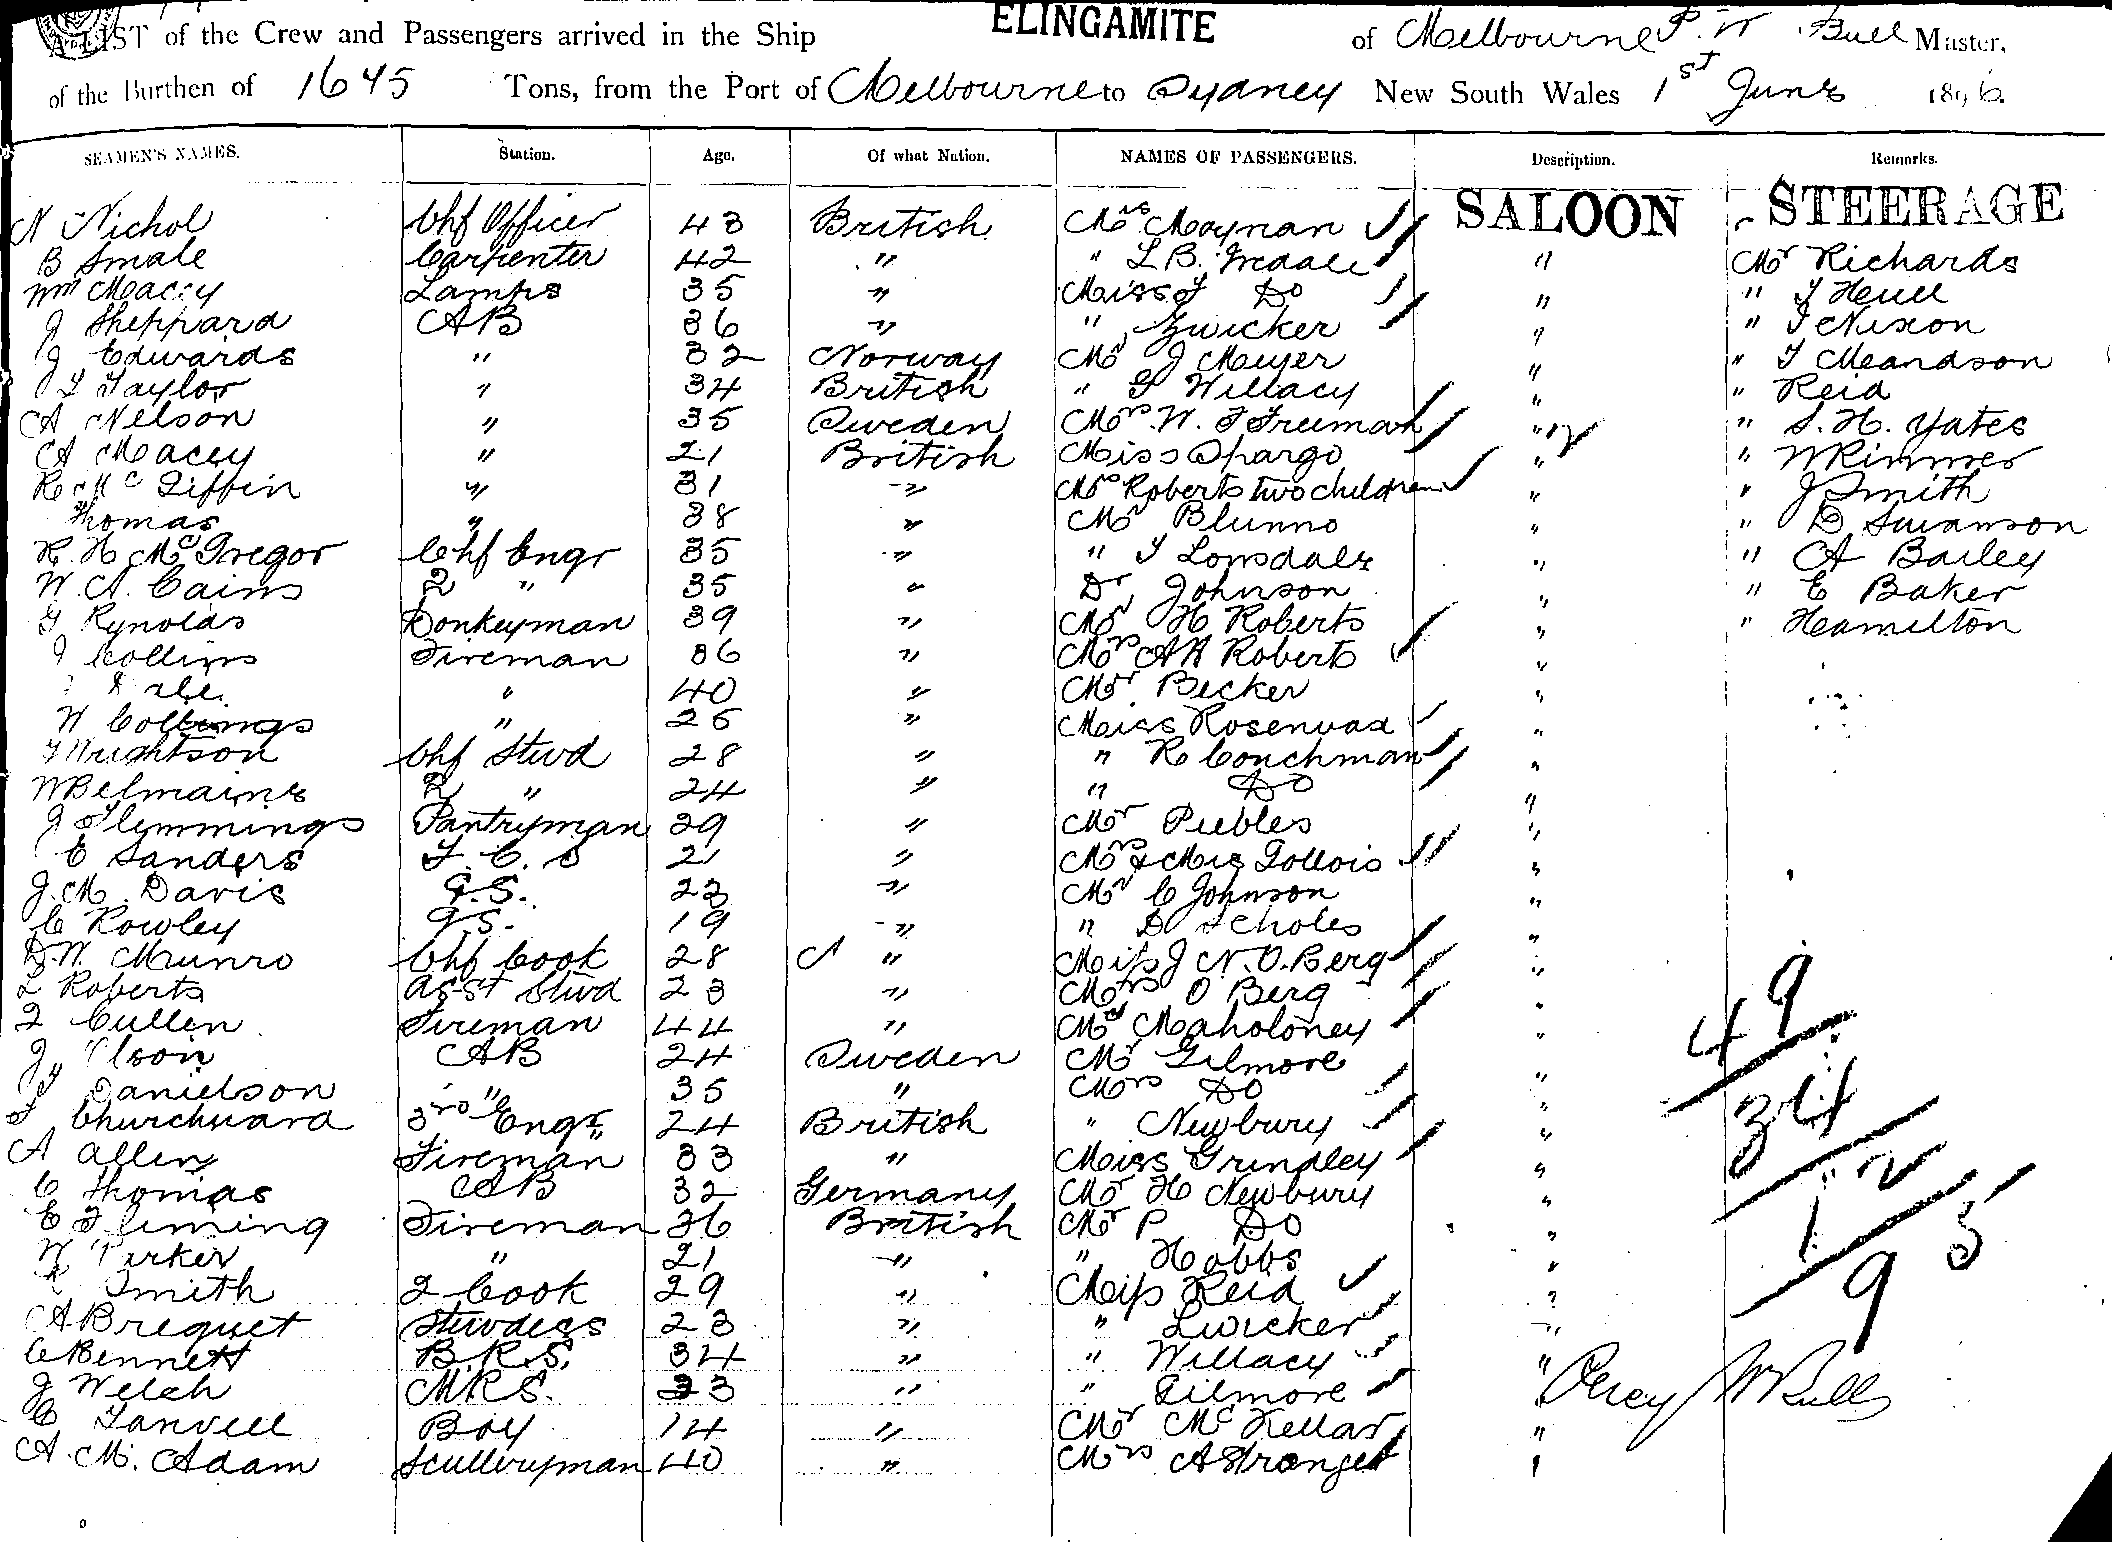 A LIST of the Crew and Passengers arrived in the Ship ELINGAMITE of Melbourne P. W Bull Master,
of the Burthen of 1645 Tons, from the Port of Melbourne to Sydney New South Wales 1st June 1896.
SEAMEN'S NAMES. Station. Age. Of what Nation. NAMES OF PASSENGERS. Description. Remarks.
N Nichol Chf Officer 43 British Mrs Moynan SALOON STEERAGE
B Smale Carpenter 42 " " L B. Iredale " Mr Richards
Wm Macey Lamps 35 " Miss I Do " " T Heull
J Sheppard AB 36 " " Zwicker " " T Nixon
J Edwards " 32 Norway Mr J Meyer " " T Meandson
T Taylor " 34 British " G Willacy " " Reid
A Nelson " 35 Sweden Mrs W. T Freeman " " S. H. Yates
A Macey " 21 British Miss Spargo " " W Rimmer
R Mc Giffin " 31 " Mrs Roberts two children " " J Smith
Thomas " 38 " Mr Blunno " " D Swanson
R. H McGregor Chf Engr 35 " " T Lonsdale " " A Bailey
W. A. Cains 2 " 35 " Dr Johnson " " E Baker
G Rynolds Donkeyman 39 " Mr H Roberts " " Hamilton
J Collins Fireman 36 " Mrs A H Roberts "
" 40 " Mr Becker "
W Collings " 26 " Miss Rosenwax "
Wrightson Chf Stwd 28 " " R Couchman "
W Belmaine 2 " 24 " " Do "
J Flemmings Pantryman 29 " Mr Peebles "
E Sanders F. C. S 21 " Mrs & Mis Gollois "
J. M. Davis G.S. 23 " Mr C Johnson "
C Rowley G.S. 19 " " D Scholes "
D. W. Munro Chf Cook 28 " Miss J N. O. Berg "
Roberts asst Stwd 23 " Mrs O Berg "
Cullen Fireman 44 " Mrs Maholoney "
J Olson AB 24 Sweden Mr Gilmore "
Danielson " 35 " Mrs Do "
F Churchward 3rd Engr 24 British " Newbury "
A Allen Fireman 33 " Miss Grindley "
C Thomas AB 32 Germany Mr H Newbury "
E Fleming Fireman 36 British Mr P Do "
W Parker " 21 " " Hobbs "
Smith 2 Cook 29 " Miss Reid "
A Breguet Stwdess 23 " " Zwicker "
C Bennett B.R.S. 34 " " Willacy "
J Welch M.R.S. 33 " " Gilmore "
C Tanvell Boy 14 " Mr McKellar "
A. M. Adam Sculleryman 40 " Mrs A Stronger "
49
34
12
95
Percy W Bull